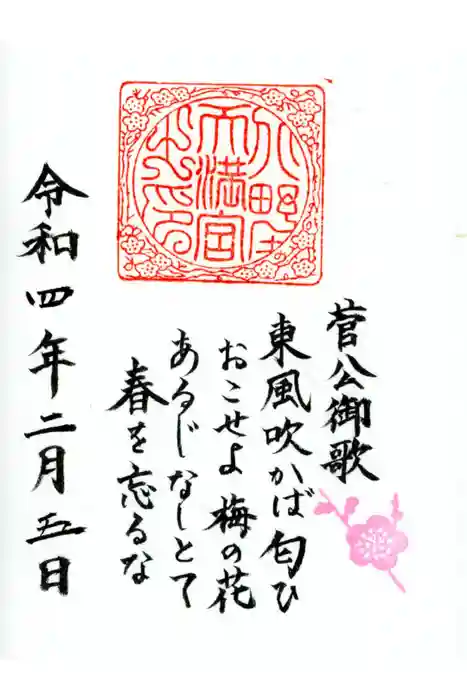 天満宮
之印
菅公御歌
東風吹かば匂ひ
おこせよ梅の花
あるじなしとて
春を忘るな
令和四年二月五日